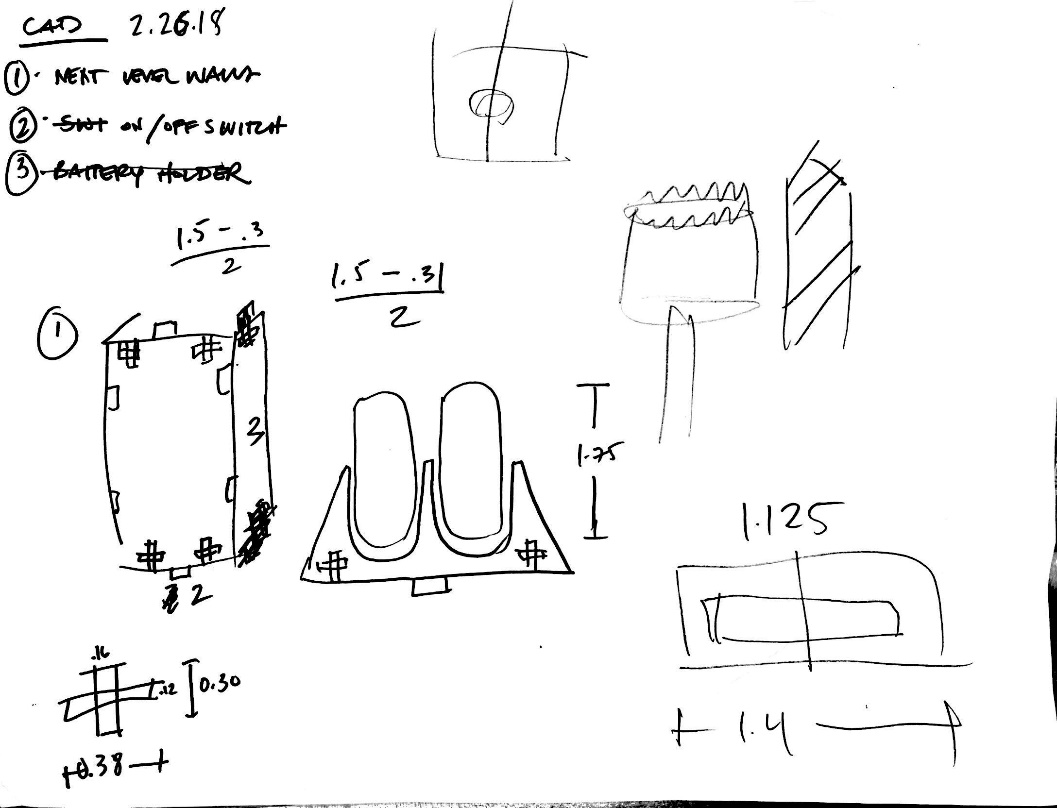 CAD 2.26.18
① NEXT LEVEL WALLS
② SWT ON/OFF SWITCH
③ BATTERY HOLDER
1.5 - .3
2
1.5 - .31
2
①
3
1.75
2
1.125
.16
.12
0.30
0.38
1.4